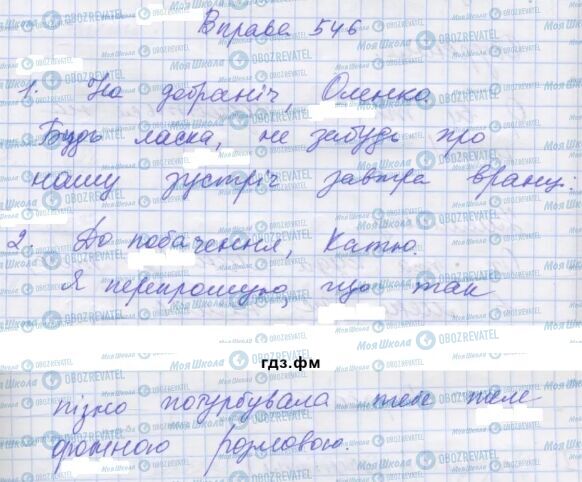 Вправа 546
1. На добраніч, Оленко.
Будь ласка, не забудь про
нашу зустріч завтра вранці.
2. До побачення, Катю.
Я перепрошую, що так
гдз.фм
пізно потурбувала тебе теле
фонною розмовою.